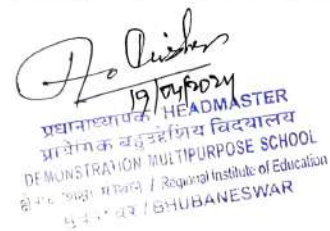 19/04/2024
प्रधानाध्यापक HEADMASTER
प्रायोगिक बहुउद्देशीय विद्यालय
DEMONSTRATION MULTIPURPOSE SCHOOL
/ Regional Institute of Education
/ BHUBANESWAR